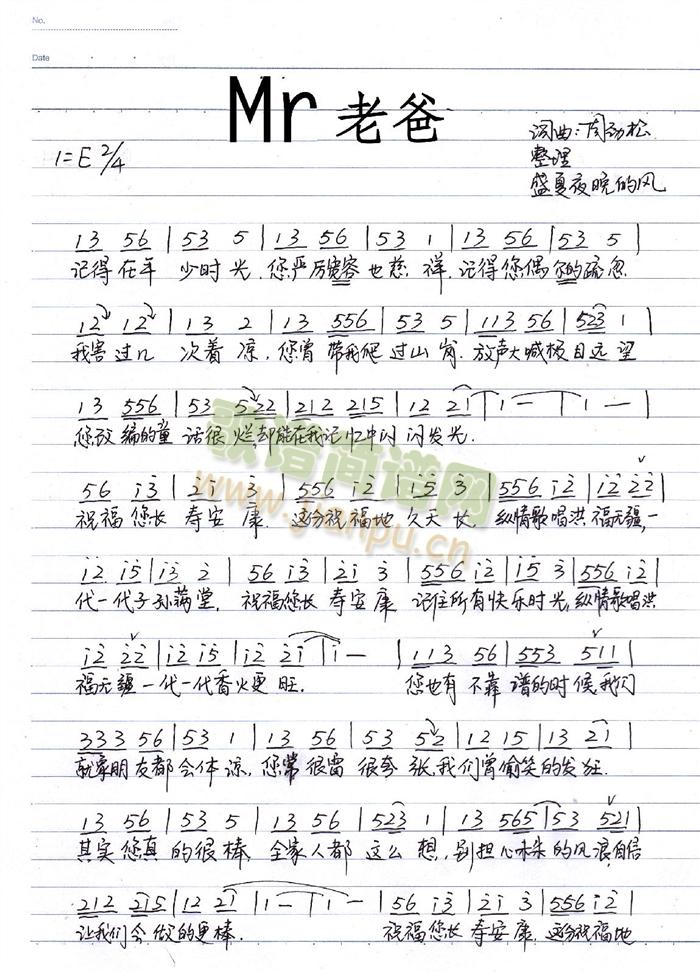 No.
Date
Mr 老爸
词曲:周劲松
1=E 2/4
整理
盛夏夜晚的风
13 56 | 53 5 | 13 56 | 53 1 | 13 56 | 53 5 |
记得在年 少时光.您严厉宽容也慈祥.记得您偶尔的疏忽
12 12 | 13 2 | 13 556 | 53 5 | 113 56 | 523 1 |
我害过几次着凉,您曾带我爬过山岗.放声大喊极目远望
13 556 | 53 522 | 212 215 | 12 21 | 1 — | 1 — |
您改编的童话很烂,却能在我记忆中闪闪发光.
56 i3 | 2i 3 | 556 i2 | i5 3 | 556 i2 | i2 22 |
祝福您长寿安康.这份祝福地久天长.纵情歌唱洪福无疆,一
i2 i5 | i3 2 | 56 i3 | 2i 3 | 556 i2 | i5 3 | 556 i2 |
代一代子孙满堂.祝福您长寿安康 记住所有快乐时光,纵情歌唱洪
i2 22 | i2 i5 | i2 2i | i — | 113 56 | 553 511 |
福无疆一代一代香火更旺. 您也有不靠谱的时候,我们
333 56 | 53 1 | 13 56 | 53 52 | 12 15 | 13 21 |
就象朋友都会体谅,您常很雷很夸张,我们曾偷笑的发狂.
13 56 | 53 5 | 13 56 | 523 1 | 13 565 | 53 521 |
其实您真的很棒 全家人都这么想,别担心未来的风浪,自信
212 215 | 12 21 | 1 — | 1 — | 56 i3 | 2i 3 | 556 i2 |
让我们会做的更棒. 祝福您长寿安康.这份祝福地
歌谱简谱网
www.jianpu.cn